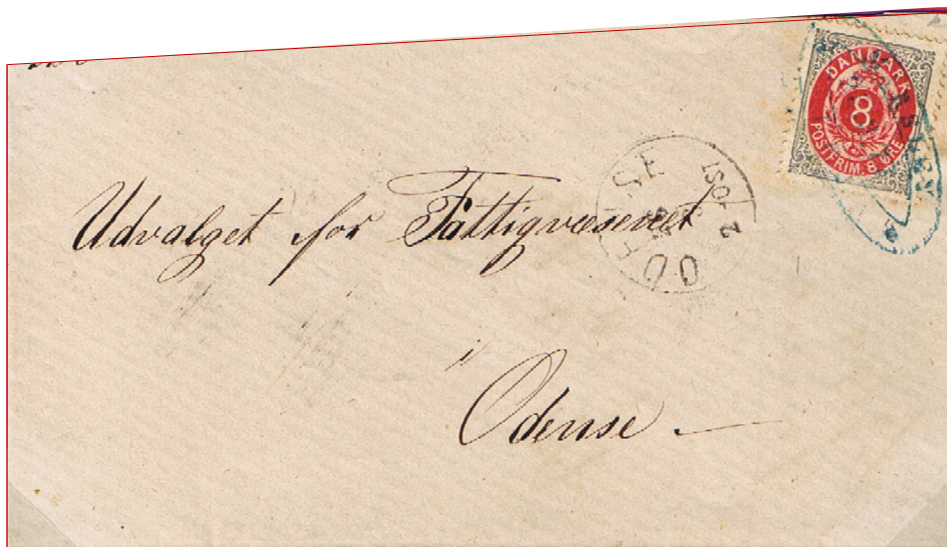 DANMARK
8
POSTFRIM. 8 ØRE
Udvalget for Fattigvæsenet
i
Odense